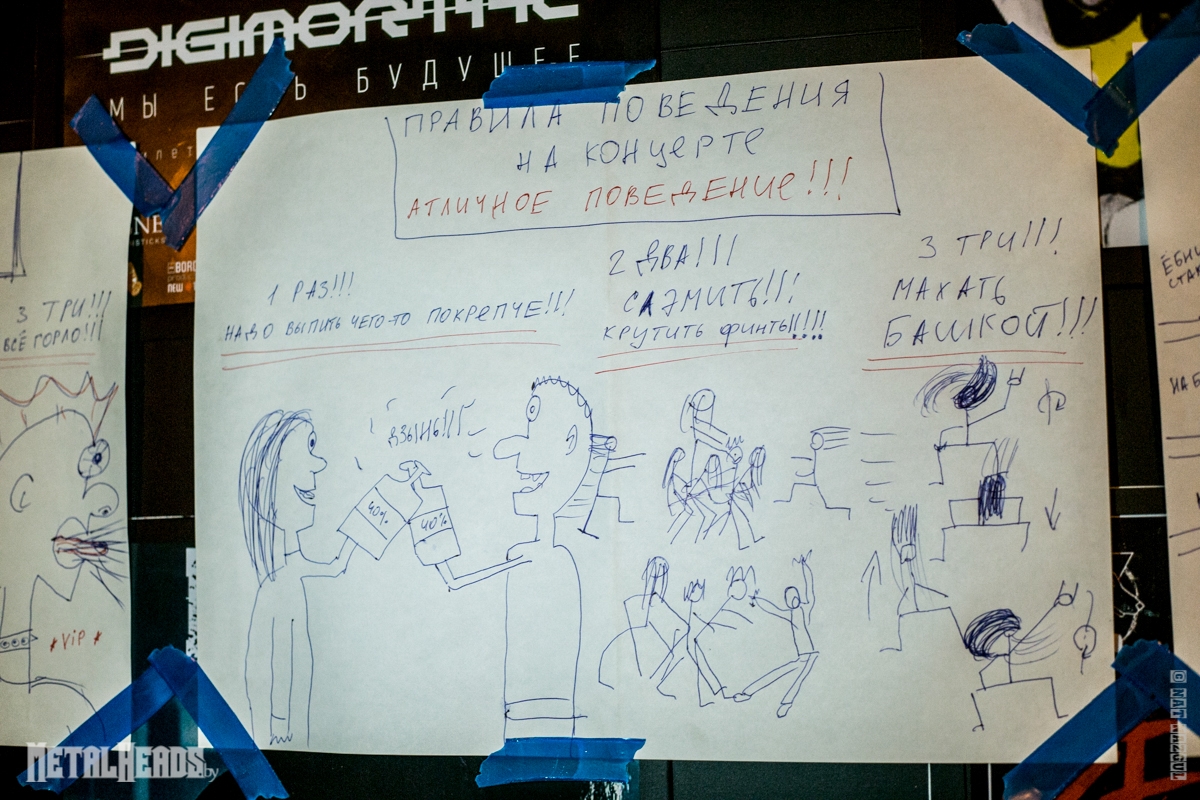 DIGIMORTAL
МЫ ЕСТЬ БУДУЩЕЕ
ПРАВИЛА ПОВЕДЕНИЯ
НА КОНЦЕРТЕ
АТЛИЧНОЕ ПОВЕДЕНИЕ!!!
1 РАЗ!!!
НАДО ВЫПИТЬ ЧЕГО-ТО ПОКРЕПЧЕ!!!
2 ДВА!!!
СЛЭМИТЬ!!!
КРУТИТЬ ФИНТЫ!!!!!
3 ТРИ!!!
МАХАТЬ
БАШКОЙ!!!
ДЗЫНЬ!!!
40%
40%
3 ТРИ!!!
ВСЁ ГОРЛО!!!
* VIP *
NEW
METALHEADS.by